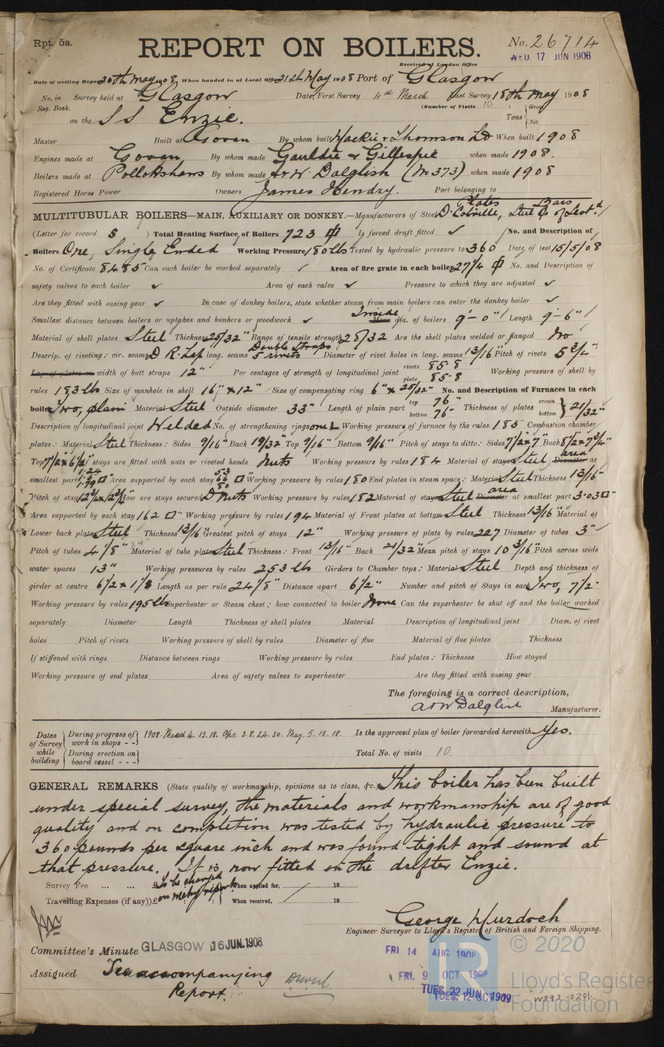 Rpt. 5a.
REPORT ON BOILERS.
No. 26714
Received at London Office
WED. 17 JUN 1908
Date of writing Report 20th May 1908 When handed in at Local Office 21st May 1908 Port of Glasgow
No. in Survey held at Glasgow Date, First Survey 11th March Last Survey 18th May 1908
Reg. Book. (Number of Visits 10)
on the SS Enzie. Tons { Gross Net
Master Built at Govan By whom built Mackie & Thomson Ld When built 1908
Engines made at Govan By whom made Gauldie & Gillespie when made 1908.
Boilers made at Pollokshaws By whom made A & W Dalglish (No 373) when made 1908
Registered Horse Power Owners James Hendry. Port belonging to
MULTITUBULAR BOILERS—MAIN, AUXILIARY OR DONKEY.—Manufacturers of Steel Plates D. Colville, Bars Steel Co of Scotd
(Letter for record S) Total Heating Surface of Boilers 723 ⏀ Is forced draft fitted ✓ No. and Description of
Boilers One, Single Ended Working Pressure 180 lbs Tested by hydraulic pressure to 360 Date of test 15/5/08
No. of Certificate 8485 Can each boiler be worked separately / Area of fire grate in each boiler 27¼ ⏀ No. and Description of
safety valves to each boiler ✓ Area of each valve ✓ Pressure to which they are adjusted ✓
Are they fitted with easing gear ✓ In case of donkey boilers, state whether steam from main boilers can enter the donkey boiler ✓
Smallest distance between boilers or uptakes and bunkers or woodwork ✓ Inside dia. of boilers 9'-0" Length 9'-6"
Material of shell plates Steel Thickness 25/32" Range of tensile strength 28/32 Are the shell plates welded or flanged No
Descrip. of riveting: cir. seams D R. Lap long. seams Double Straps 5 rivets Diameter of rivet holes in long. seams 13/16" Pitch of rivets 5¾"
Lap of plates or width of butt straps 12" Per centages of strength of longitudinal joint rivets 85·8 plate 85·8 Working pressure of shell by
rules 183 lbs Size of manhole in shell 16" x 12" Size of compensating ring 6" x 25/32" No. and Description of Furnaces in each
boiler Two, plain Material Steel Outside diameter 33" Length of plain part top 76" bottom 76" Thickness of plates crown bottom } 21/32"
Description of longitudinal joint Welded No. of strengthening rings none Working pressure of furnace by the rules 185 Combustion chamber
plates: Material Steel Thickness: Sides 9/16" Back 19/32" Top 9/16" Bottom 9/16" Pitch of stays to ditto: Sides 7½" x 7" Back 8½" x 7¾"
Top 7½" x 6½" If stays are fitted with nuts or riveted heads Nuts Working pressure by rules 184 Material of stays Steel area Diameter at
smallest part Area supported by each stay Working pressure by rules 180 End plates in steam space: Material Steel Thickness 13/16"
Pitch of stays How are stays secured D Nuts Working pressure by rules 182 Material of stays Steel area Diameter at smallest part 3·03 □"
Area supported by each stay 162 □" Working pressure by rules 194 Material of Front plates at bottom Steel Thickness 13/16" Material of
Lower back plate Steel Thickness 13/16" Greatest pitch of stays 12" Working pressure of plate by rules 227 Diameter of tubes 3"
Pitch of tubes 4⅛" Material of tube plates Steel Thickness: Front 13/16" Back 21/32" Mean pitch of stays 10 3/16" Pitch across wide
water spaces 13" Working pressures by rules 253 lbs Girders to Chamber tops: Material Steel Depth and thickness of
girder at centre 6½ x 1⅛ Length as per rule 24⅛" Distance apart 6½" Number and pitch of Stays in each Two, 7½"
Working pressure by rules 195 lbs Superheater or Steam chest; how connected to boiler None Can the superheater be shut off and the boiler worked
separately Diameter Length Thickness of shell plates Material Description of longitudinal joint Diam. of rivet
holes Pitch of rivets Working pressure of shell by rules Diameter of flue Material of flue plates Thickness
If stiffened with rings Distance between rings Working pressure by rules End plates: Thickness How stayed
Working pressure of end plates Area of safety valves to superheater Are they fitted with easing gear
The foregoing is a correct description,
A & W Dalglish Manufacturer.
Dates of Survey while building { During progress of work in shops - - 1908. March 4. 13. 18. Apr. 3. 8. 24. 30. May. 5. 15. 18. Is the approved plan of boiler forwarded herewith Yes.
During erection on board vessel - - - Total No. of visits 10.
GENERAL REMARKS (State quality of workmanship, opinions as to class, &c. This boiler has been built
under special survey, the materials and workmanship are of good
quality and on completion was tested by hydraulic pressure to
360 pounds per square inch and was found tight and sound at
that pressure. It is now fitted in the drifter Enzie.
Survey Fee ... ... £ To be charged When applied for, / 19
Travelling Expenses (if any) £ on Mchy report When received, / 19
George Murdoch
Engineer Surveyor to Lloyd's Register of British and Foreign Shipping.
Committee's Minute GLASGOW 16 JUN. 1908
FRI. 14 AUG 1908
Assigned See accompanying
Report.
FRI. 9 OCT 1908
TUES. 22 JUN 1909
TUES. 12 OCT 1909
LR
© 2020
Lloyd's Register
Foundation
W892-0201